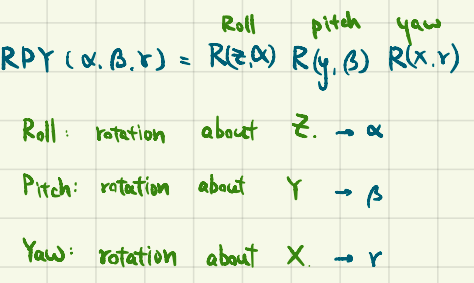 Roll pitch yaw
RPY (α, β, r) = R(z,α) R(y, β) R(x, r)
Roll: rotation about Z. → α
Pitch: rotation about Y → β
Yaw: rotation about X. → r